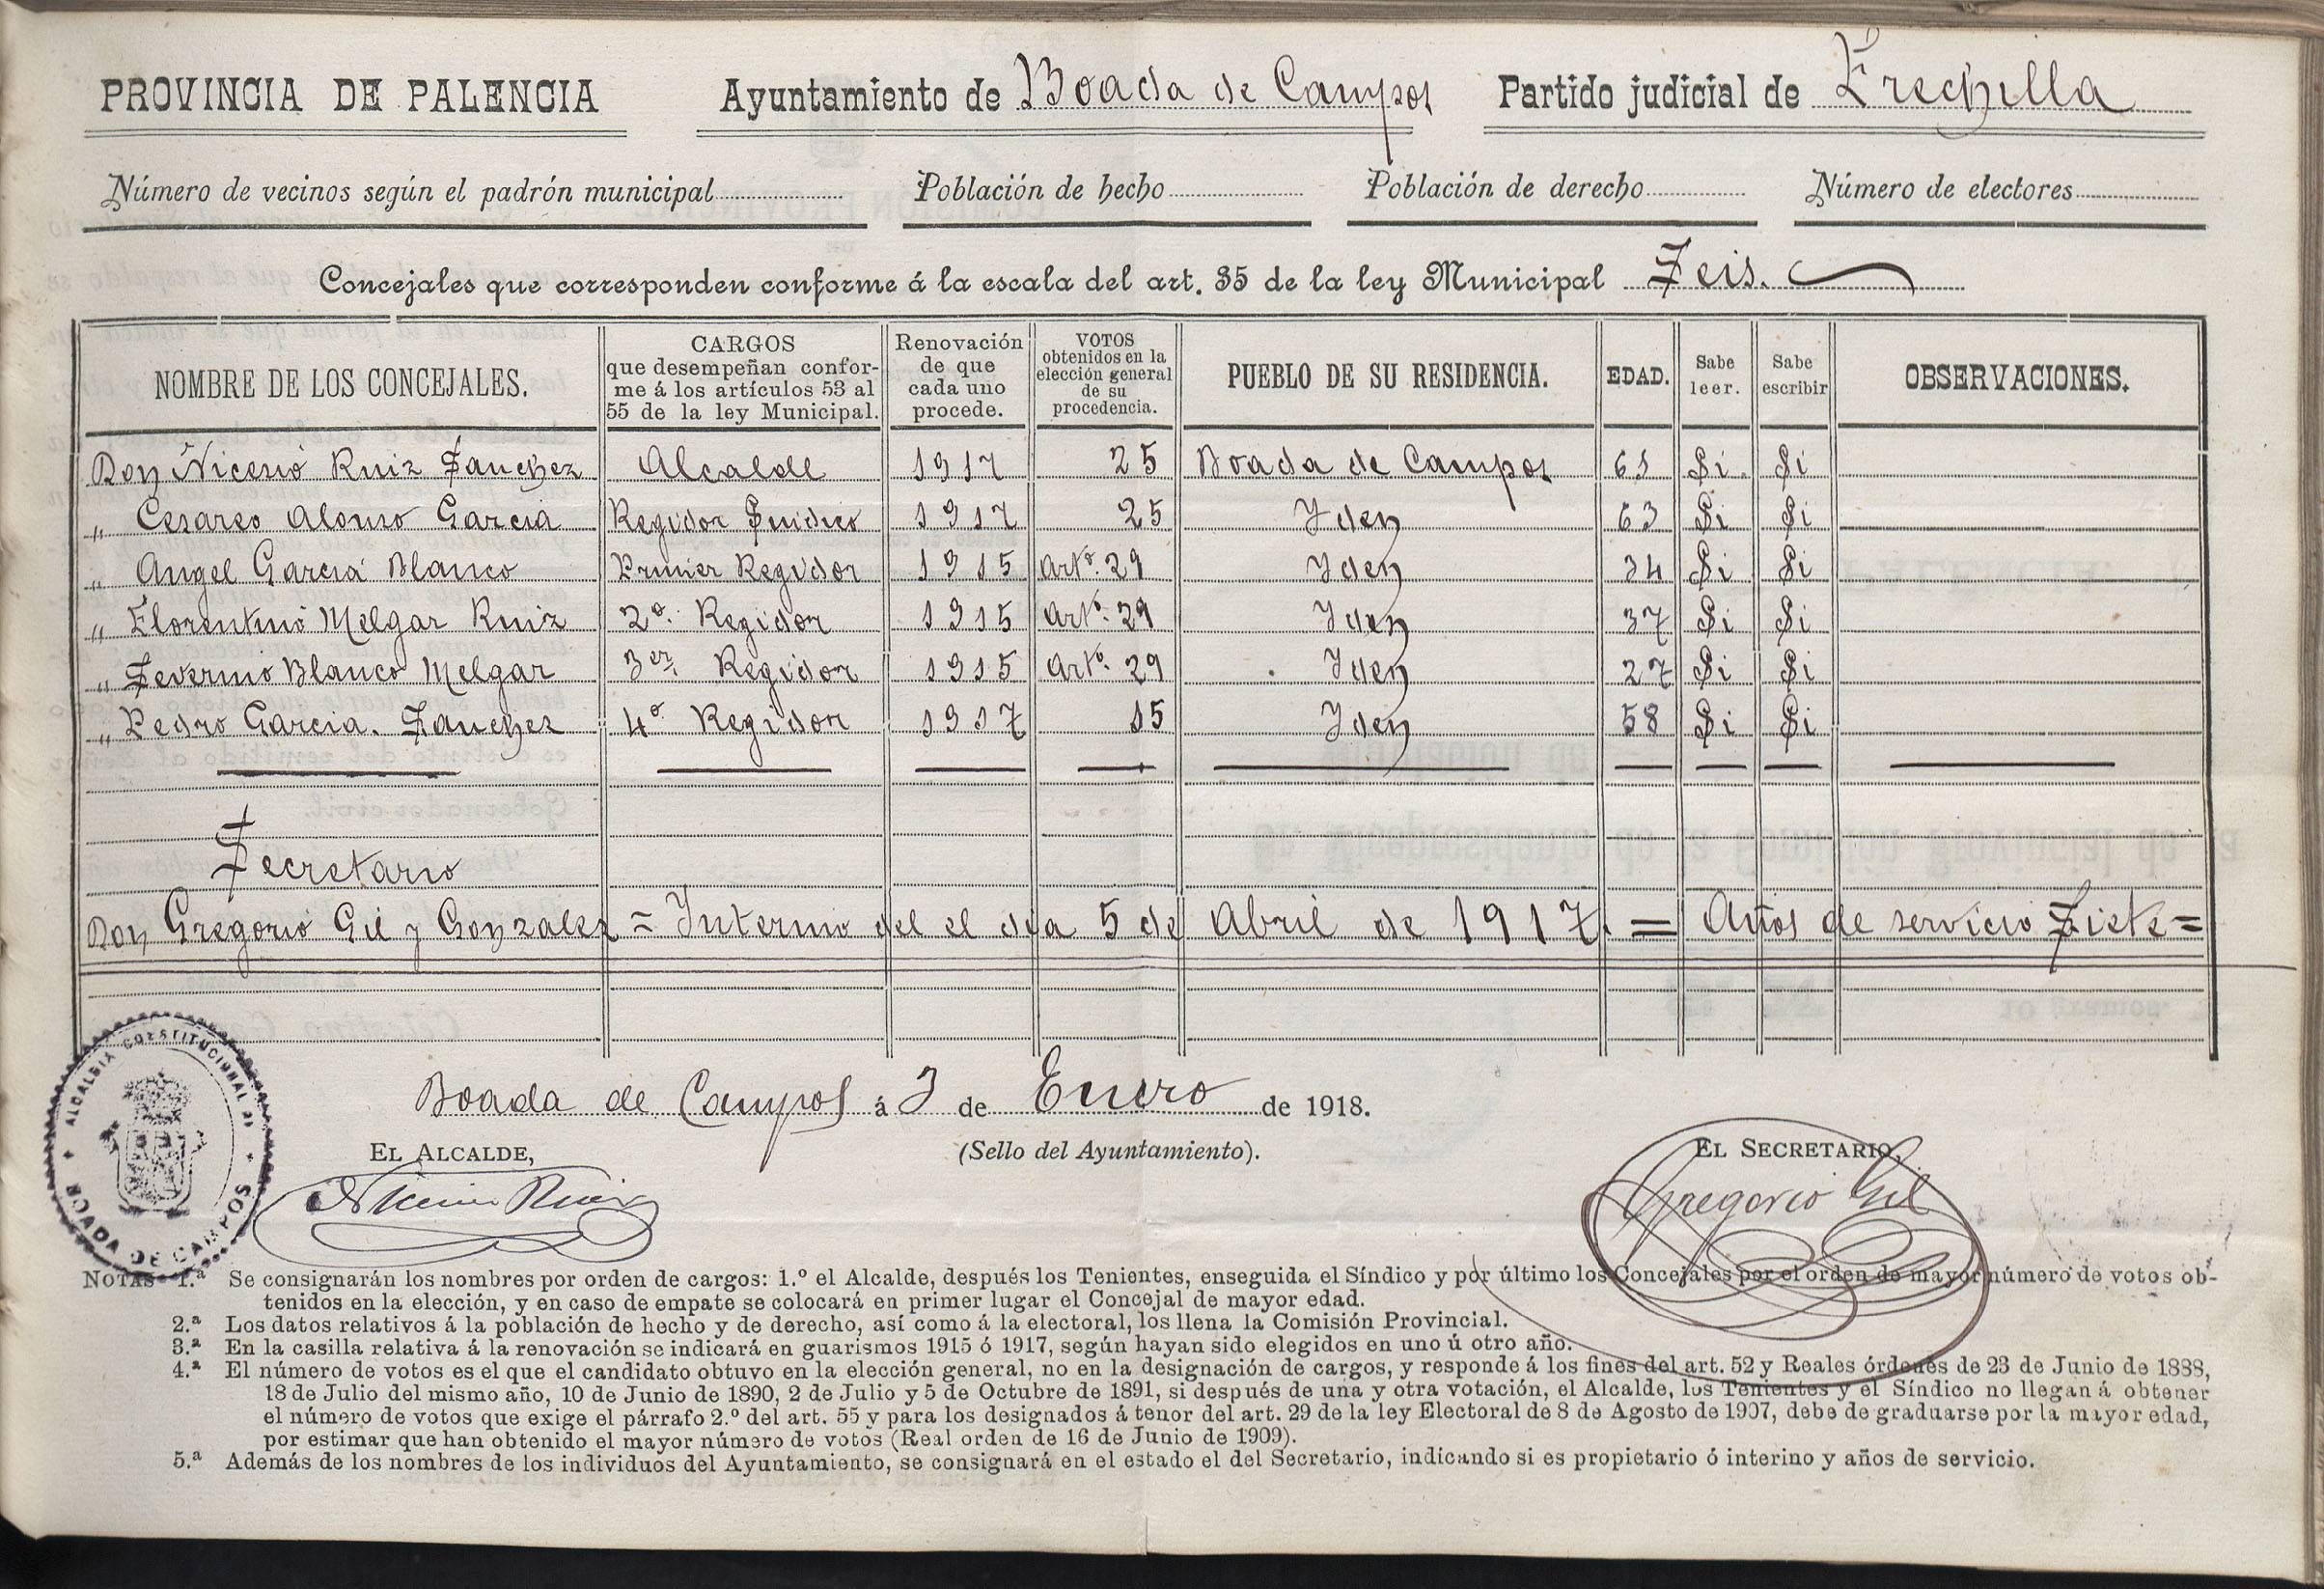 PROVINCIA DE PALENCIA Ayuntamiento de Boada de Campos Partido judicial de Frechilla
Número de vecinos según el padrón municipal Población de hecho Población de derecho Número de electores
Concejales que corresponden conforme á la escala del art. 35 de la ley Municipal Seis.
NOMBRE DE LOS CONCEJALES. CARGOS que desempeñan conforme á los artículos 53 al 55 de la ley Municipal. Renovación de que cada uno procede. VOTOS obtenidos en la elección general de su procedencia. PUEBLO DE SU RESIDENCIA. EDAD. Sabe leer. Sabe escribir OBSERVACIONES.
Don Nicesio Ruiz Sanchez Alcalde 1917 25 Boada de Campos 61 Si Si
„ Cesareo Alonso Garcia Regidor Sindico 1917 25 Yden 63 Si Si
„ Angel Garcia Blanco Primer Regidor 1915 Artº. 29 Yden 34 Si Si
„ Florentino Melgar Ruiz 2º. Regidor 1915 Artº. 29 Yden 37 Si Si
„ Severino Blanco Melgar 3er. Regidor 1915 Artº. 29 Yden 27 Si Si
„ Pedro Garcia Sanchez 4º Regidor 1917 15 Yden 58 Si Si
Secretario
Don Gregorio Gil y Gonzalez = Interino del el dia 5 de Abril de 1917. = Años de servicio Siete =
Boada de Campos á 3 de Enero de 1918.
EL ALCALDE, (Sello del Ayuntamiento). EL SECRETARIO,
Ruiz Gregorio Gil
ALCALDIA CONSTITUCIONAL DE BOADA DE CAMPOS
NOTAS 1.ª Se consignarán los nombres por orden de cargos: 1.º el Alcalde, después los Tenientes, enseguida el Síndico y por último los Concejales por el orden de mayor número de votos ob-
tenidos en la elección, y en caso de empate se colocará en primer lugar el Concejal de mayor edad.
2.ª Los datos relativos á la población de hecho y de derecho, así como á la electoral, los llena la Comisión Provincial.
3.ª En la casilla relativa á la renovación se indicará en guarismos 1915 ó 1917, según hayan sido elegidos en uno ú otro año.
4.ª El número de votos es el que el candidato obtuvo en la elección general, no en la designación de cargos, y responde á los fines del art. 52 y Reales órdenes de 23 de Junio de 1888,
18 de Julio del mismo año, 10 de Junio de 1890, 2 de Julio y 5 de Octubre de 1891, si después de una y otra votación, el Alcalde, los Tenientes y el Síndico no llegan á obtener
el número de votos que exige el párrafo 2.º del art. 55 y para los designados á tenor del art. 29 de la ley Electoral de 8 de Agosto de 1907, debe de graduarse por la mayor edad,
por estimar que han obtenido el mayor número de votos (Real orden de 16 de Junio de 1909).
5.ª Además de los nombres de los individuos del Ayuntamiento, se consignará en el estado el del Secretario, indicando si es propietario ó interino y años de servicio.